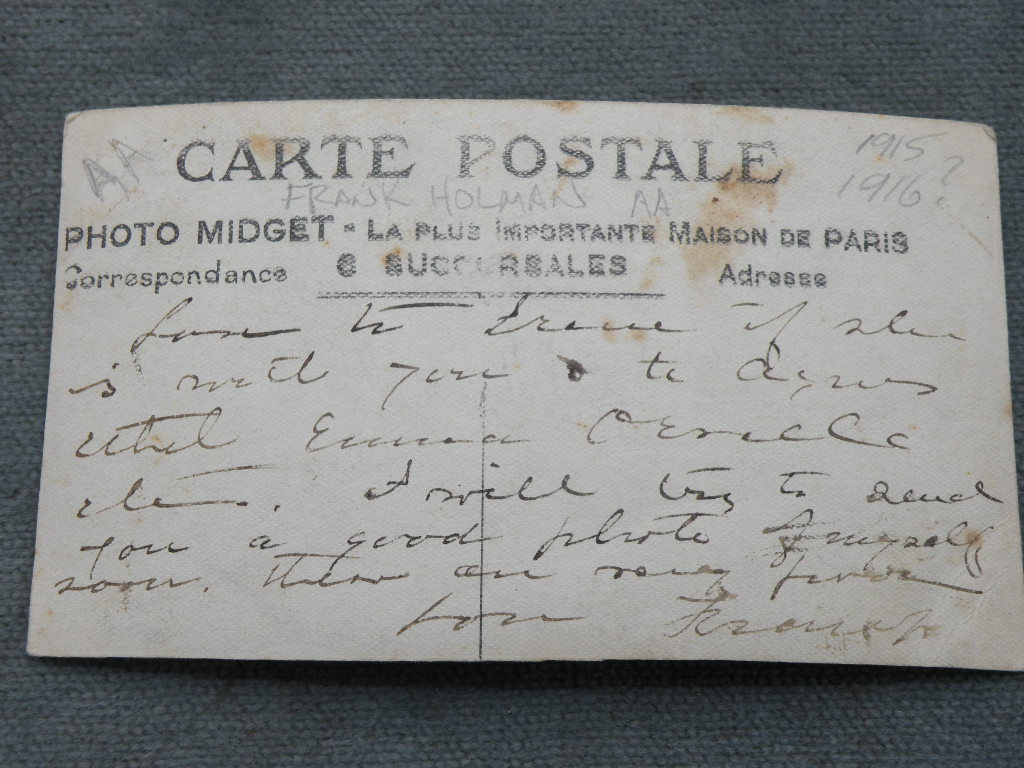 AA
1915
1916?
CARTE POSTALE
FRANK HOLMAN AA
PHOTO MIDGET - LA PLUS IMPORTANTE MAISON DE PARIS
Correspondance 6 SUCCURSALES Adresse
Love to Irene if she
is with you & to Agnes
Ethel Emma Orville
etc. I will try to send
you a good photo of myself
soon. These are very
love Frank